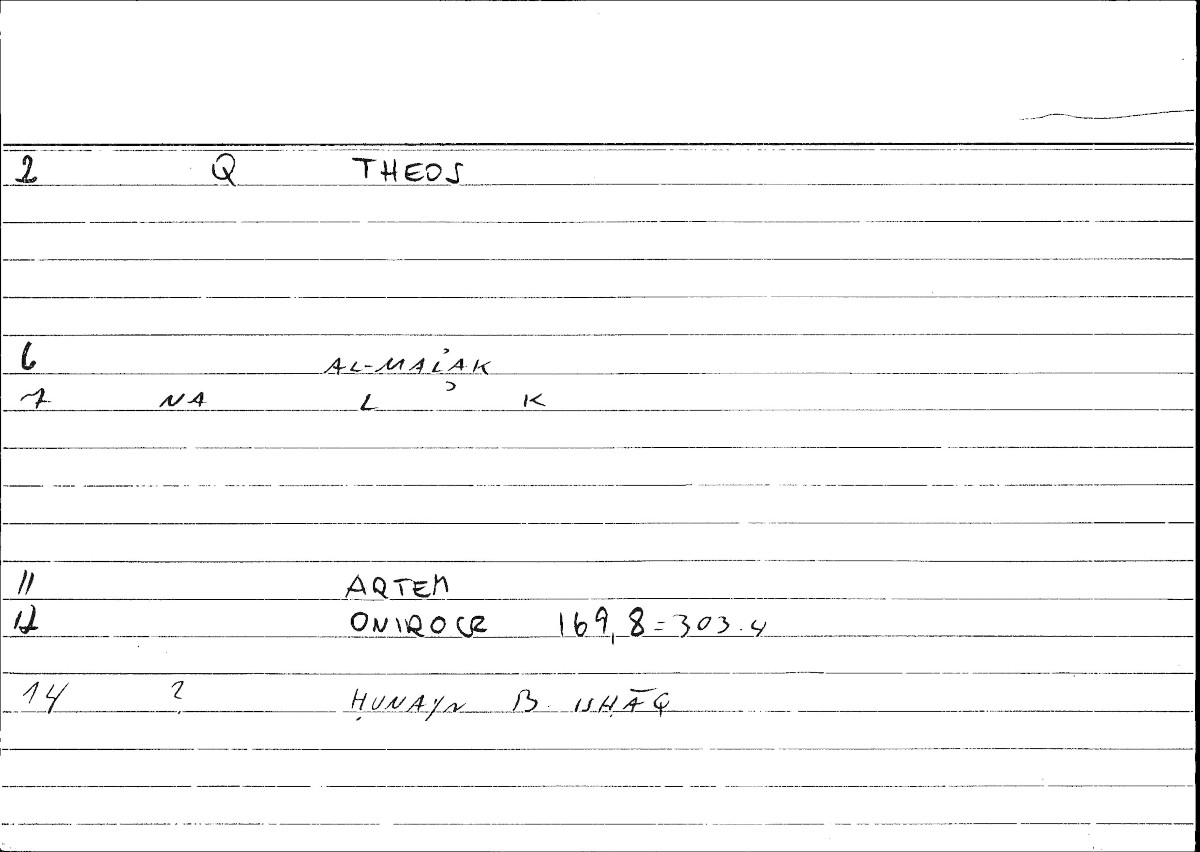 2 Q THEOS
6 AL-MALʾAK
7 NA L ʾ K
11 ARTEM
12 ONIROCR 169,8=303.4
14 ? ḤUNAYN B. ISḤĀQ